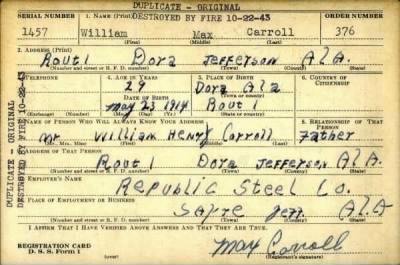 DUPLICATE - ORIGINAL
DESTROYED BY FIRE 10-22-43
SERIAL NUMBER 1. NAME (Print) ORDER NUMBER
1457 William Max Carroll 376
(First) (Middle) (Last)
2. ADDRESS (Print)
Rout 1 Dora Jefferson Ala.
(Number and street or R. F. D. number) (Town) (County) (State)
3. TELEPHONE 4. AGE IN YEARS 5. PLACE OF BIRTH 6. COUNTRY OF CITIZENSHIP
29 Dora Ala
DATE OF BIRTH Rout 1
May 23 1914
(Exchange) (Number) (Mo.) (Day) (Yr.) (State or country)
7. NAME OF PERSON WHO WILL ALWAYS KNOW YOUR ADDRESS 8. RELATIONSHIP OF THAT PERSON
Mr William Henry Carroll Father
(Mr., Mrs., Miss) (First) (Middle) (Last)
9. ADDRESS OF THAT PERSON
Rout 1 Dora Jefferson Ala.
(Number and street or R. F. D. number) (Town) (County) (State)
10. EMPLOYER'S NAME
Republic Steel Co.
11. PLACE OF EMPLOYMENT OR BUSINESS
Sayre Jeff. Ala
(Number and street or R. F. D. number) (Town) (County) (State)
I AFFIRM THAT I HAVE VERIFIED ABOVE ANSWERS AND THAT THEY ARE TRUE.
REGISTRATION CARD
D. S. S. Form 1
Max Carroll
(Registrant's signature)
DUPLICATE - ORIGINAL
DESTROYED BY FIRE 10-22-43